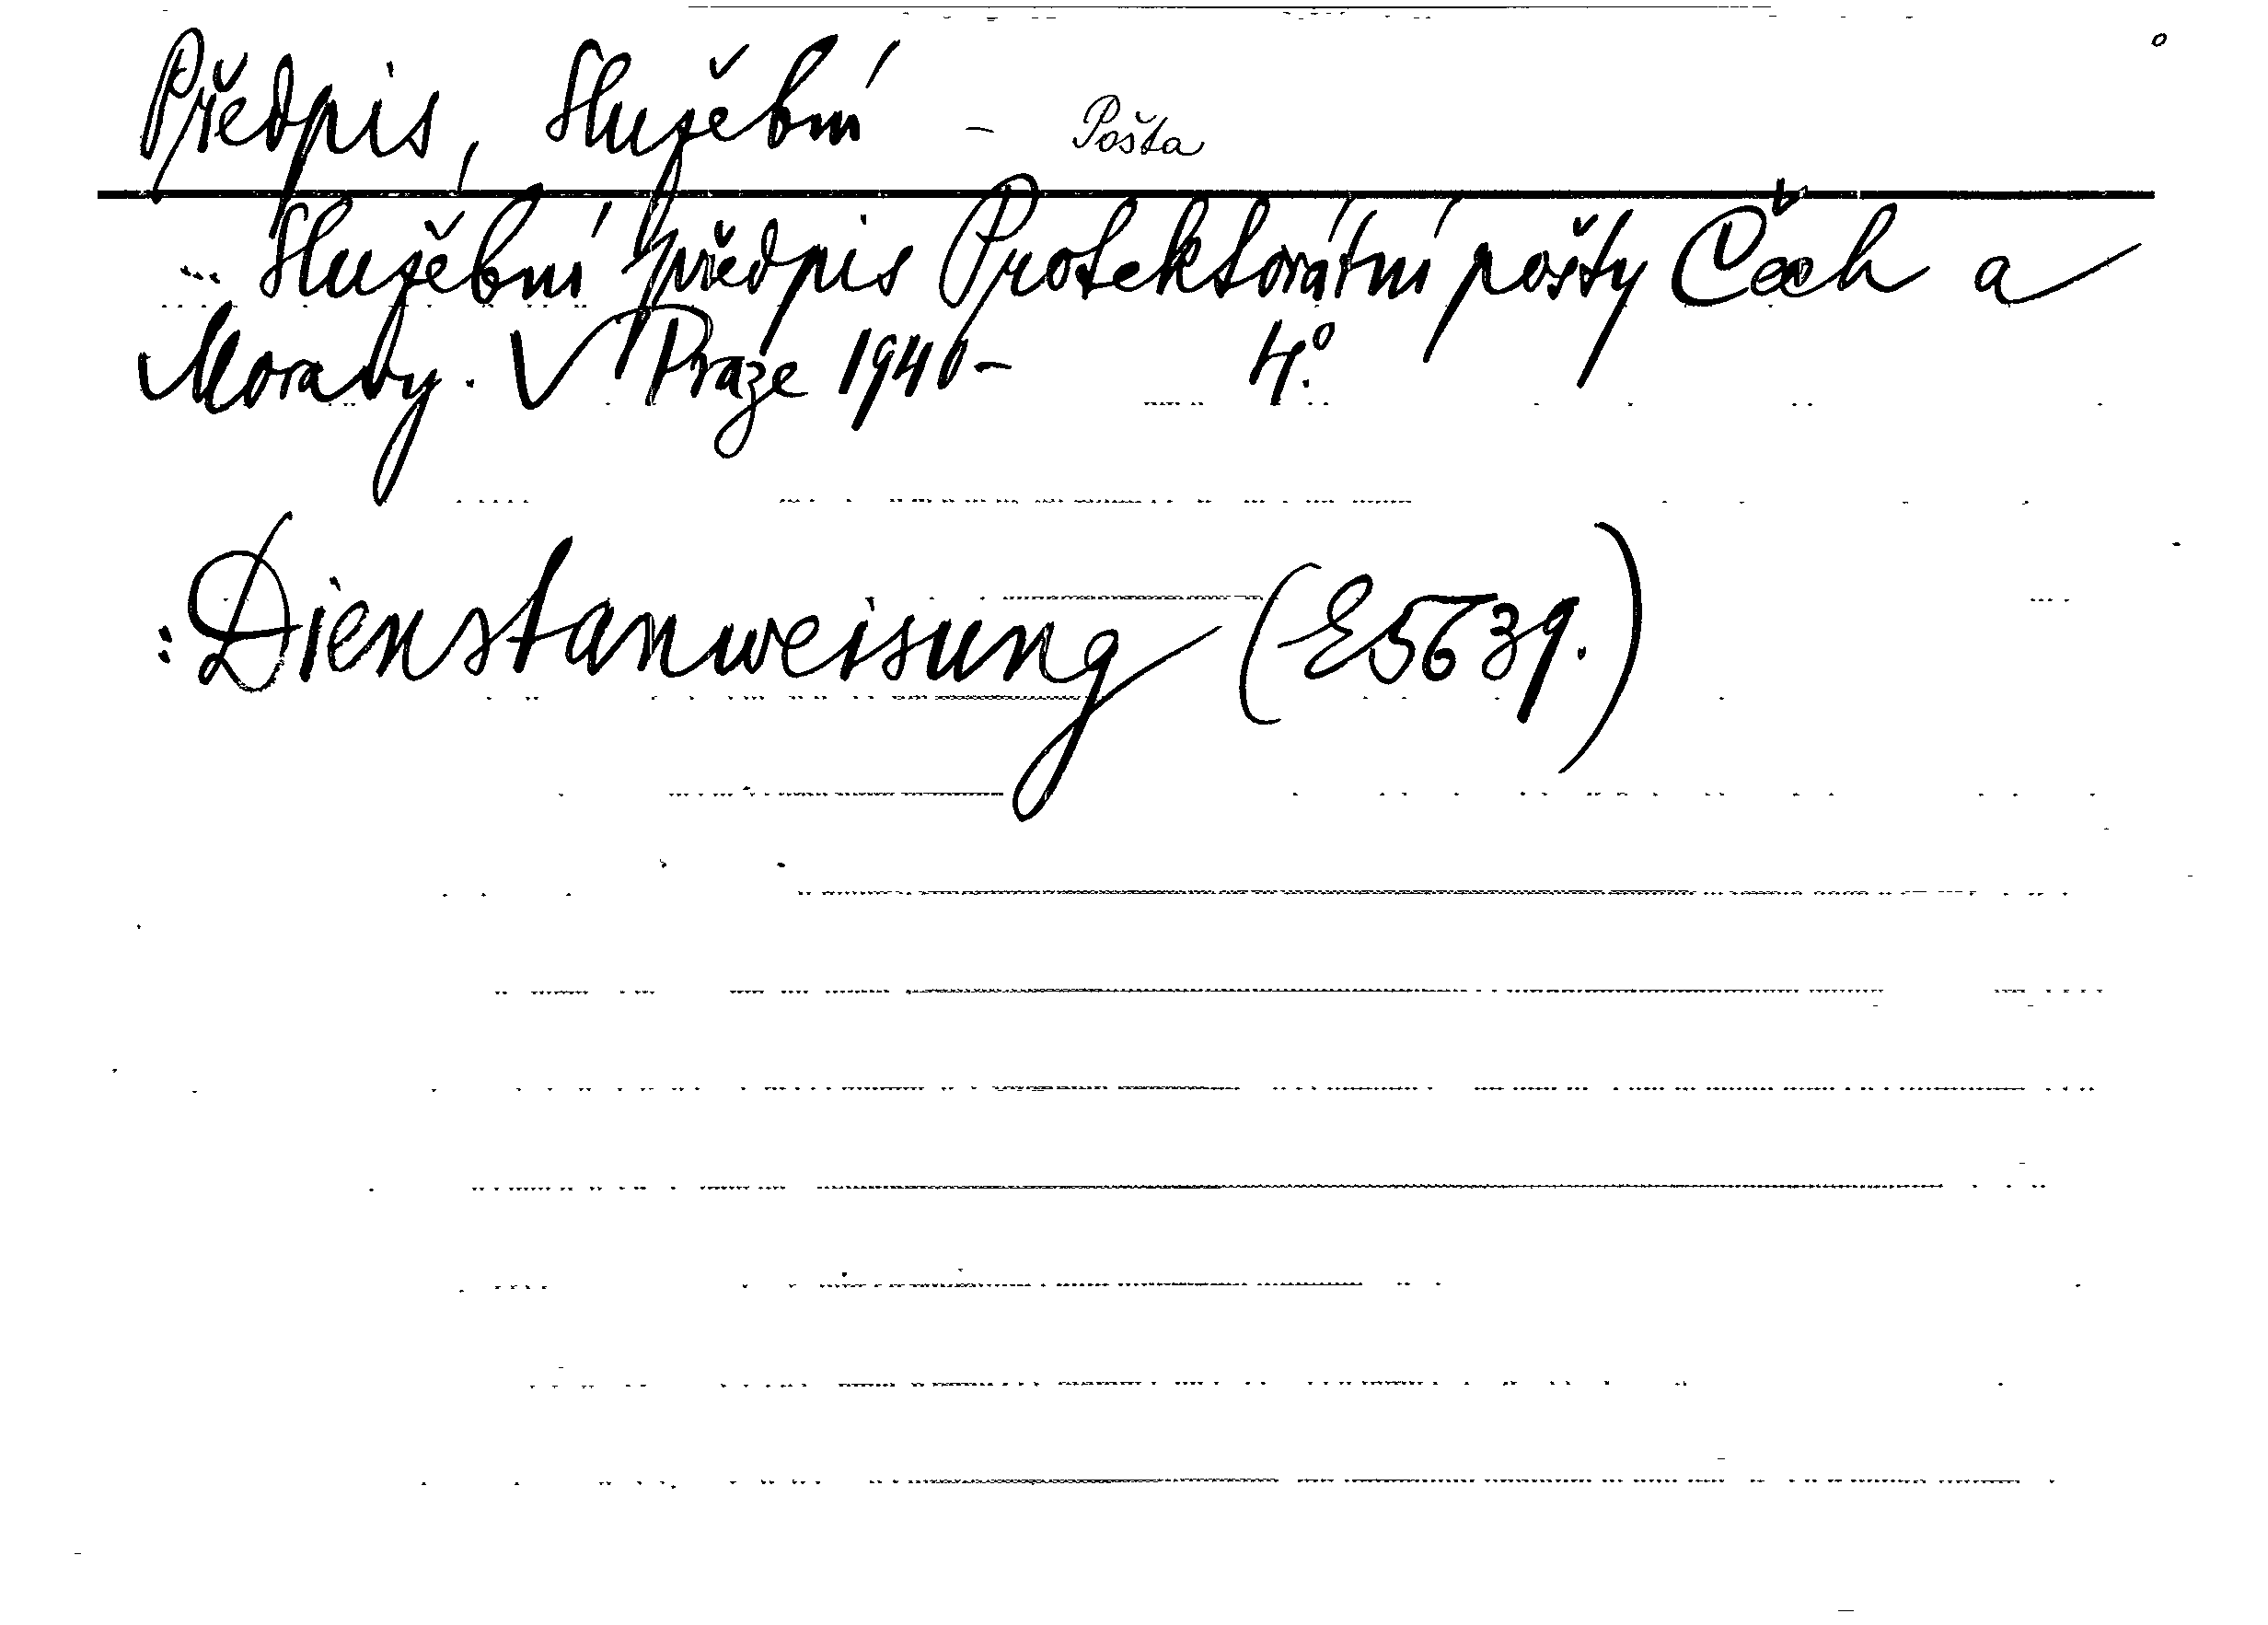 Předpis, Služební - Pošta
... Služební předpis Protektorátní pošty Čech a
Moravy. V Praze 1940- 4°.
: Dienstanweisung (E 5639.)